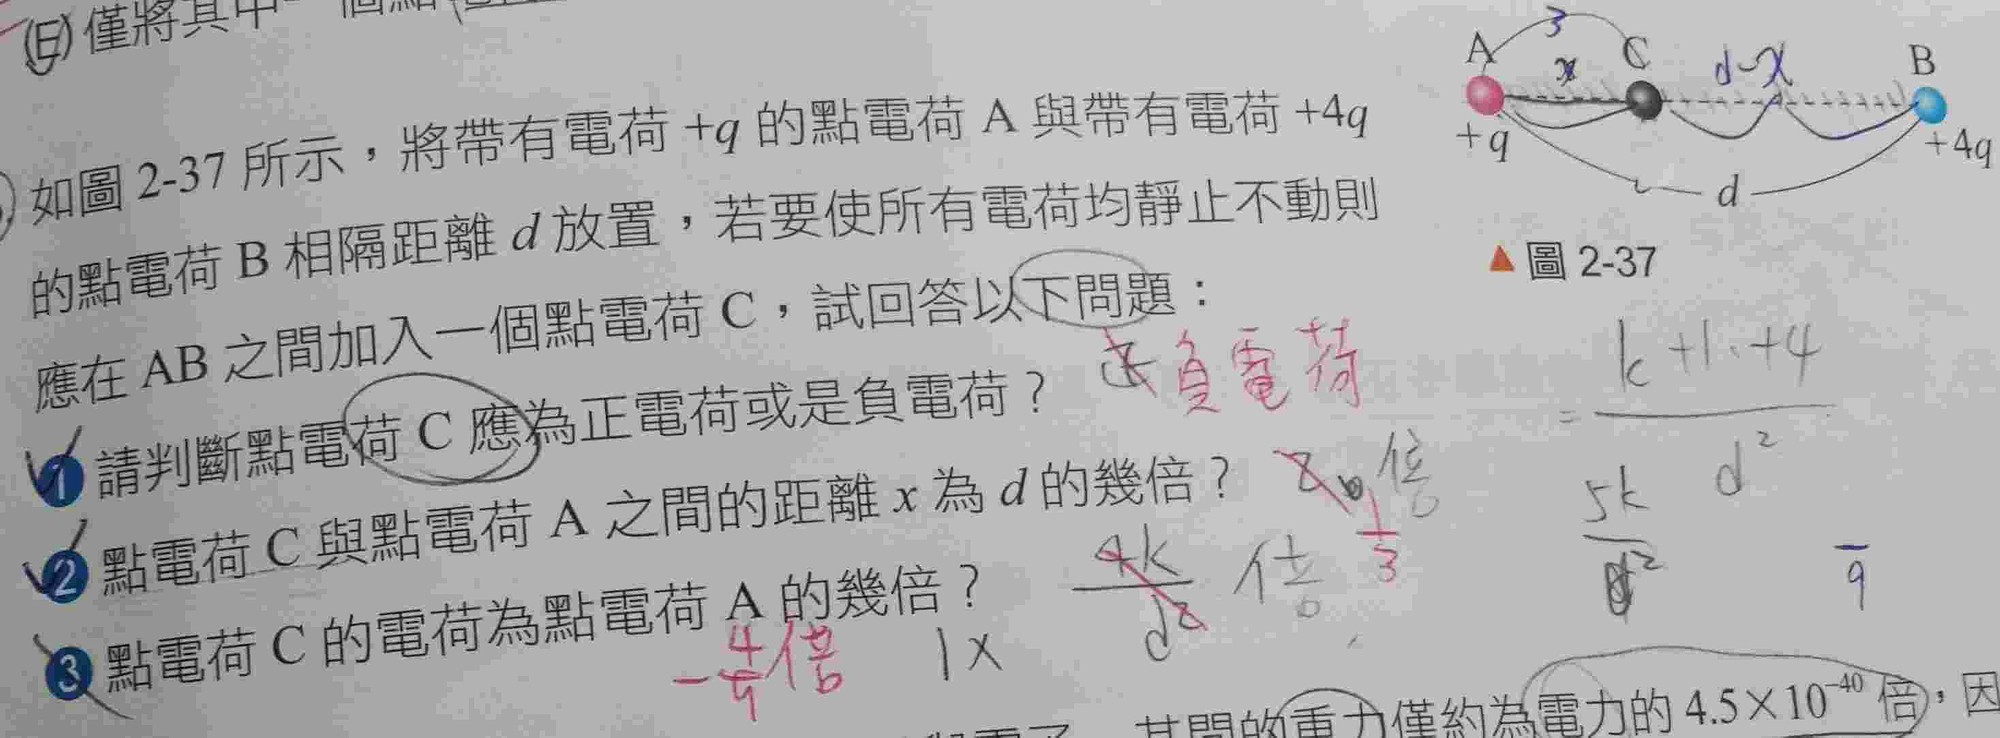 (E) 僅將其中一個點
A 3 C B
x d-x
+q +4q
d
如圖 2-37 所示，將帶有電荷 +q 的點電荷 A 與帶有電荷 +4q
的點電荷 B 相隔距離 d 放置，若要使所有電荷均靜止不動則
應在 AB 之間加入一個點電荷 C，試回答以下問題：
▲圖 2-37
❶ 請判斷點電荷 C 應為正電荷或是負電荷？ 負電荷
❷ 點電荷 C 與點電荷 A 之間的距離 x 為 d 的幾倍？ 倍 1/3
❸ 點電荷 C 的電荷為點電荷 A 的幾倍？ 4k/d² 倍
-4/9 倍 1x
= k+1·+4 / d²
5k/d²
9
其間的重力僅約為電力的 4.5×10⁻⁴⁰ 倍，因